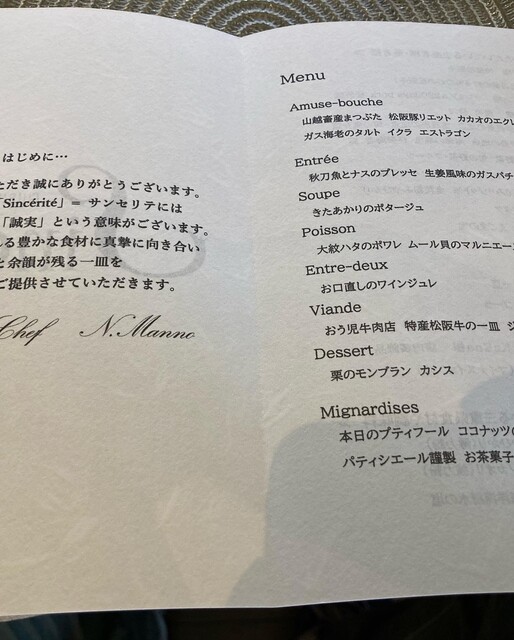 はじめに…
ただき誠にありがとうございます。
「Sincérité」= サンセリテには
「誠実」という意味がございます。
る豊かな食材に真摯に向き合い
と余韻が残る一皿を
ご提供させていただきます。
Chef N.Manno
Menu
Amuse-bouche
山越畜産まつぶた 松阪豚リエット カカオのエクレ
ガス海老のタルト イクラ エストラゴン
Entrée
秋刀魚とナスのプレッセ 生姜風味のガスパチ
Soupe
きたあかりのポタージュ
Poisson
大紋ハタのポワレ ムール貝のマルニエー
Entre-deux
お口直しのワインジュレ
Viande
おう児牛肉店 特産松阪牛の一皿 ジ
Dessert
栗のモンブラン カシス
Mignardises
本日のプティフール ココナッツの
パティシエール謹製 お茶菓子